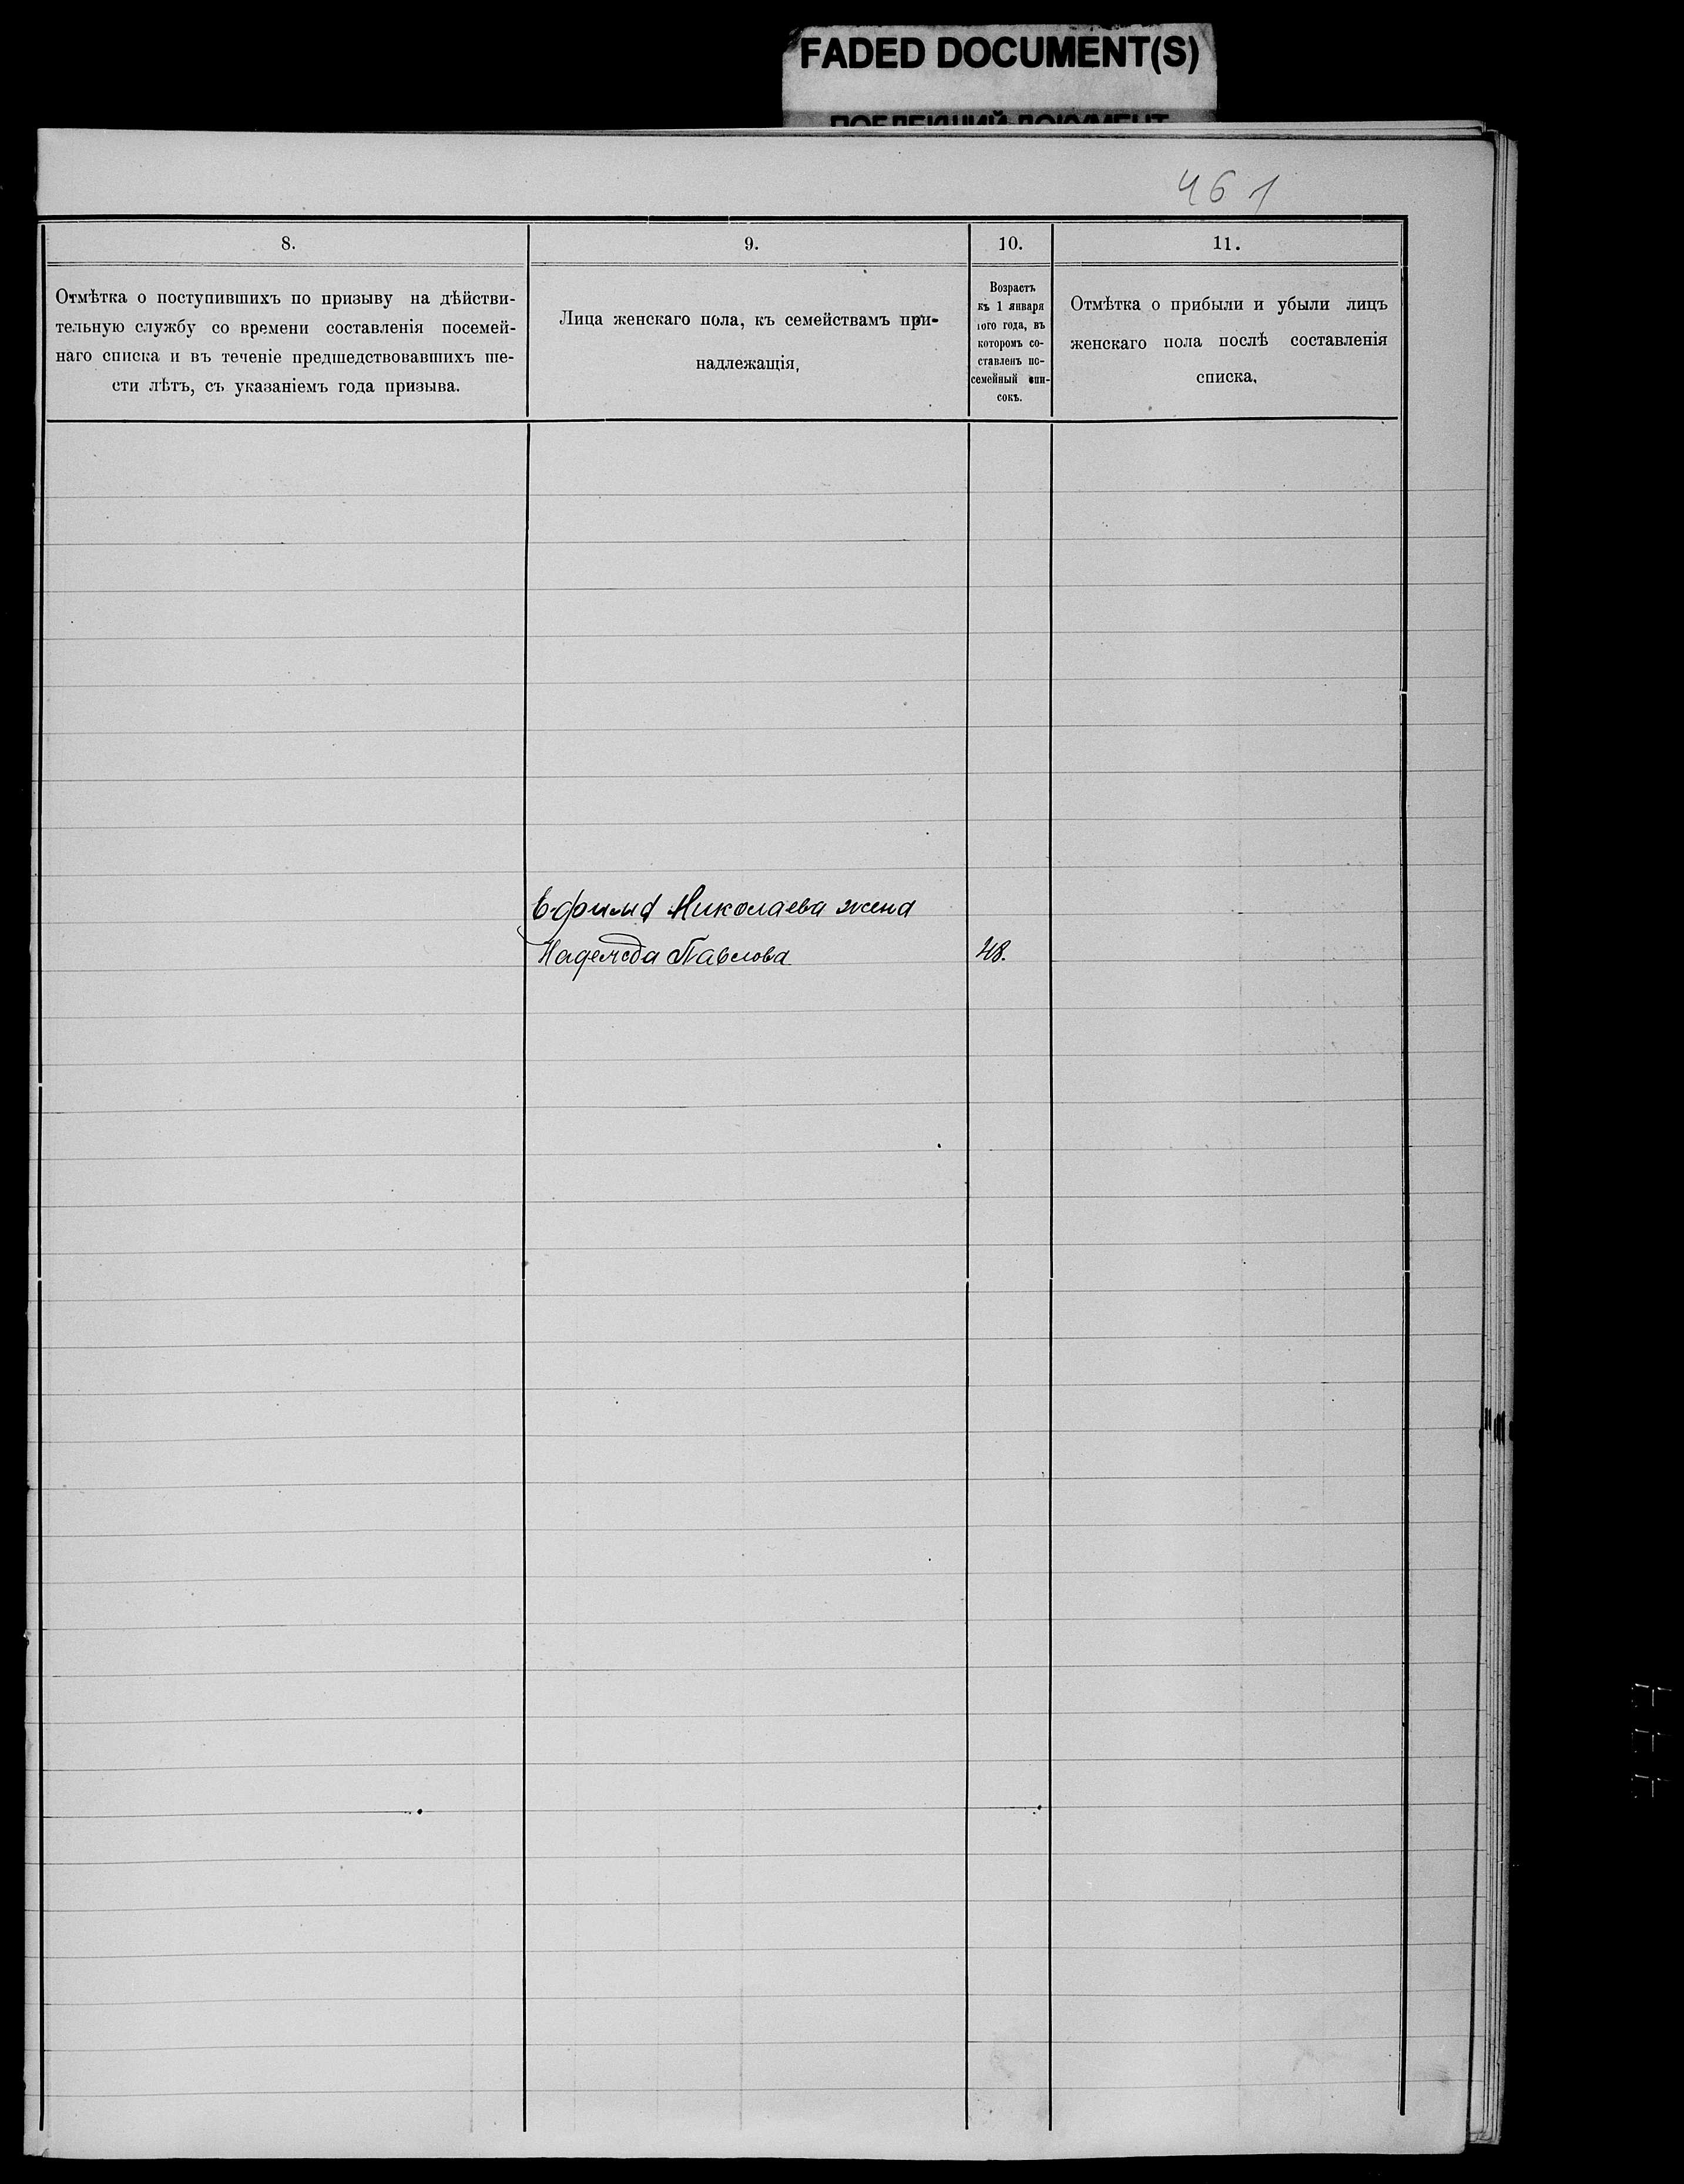 FADED DOCUMENT(S)
ПОБЛЕКШИЙ ДОКУМЕНТ
461
8.
Отмѣтка о поступившихъ по призыву на дѣйстви-
тельную службу со времени составленія посемей-
наго списка и въ теченіе предшедствовавшихъ ше-
сти лѣтъ, съ указаніемъ года призыва.
9.
Лица женскаго пола, къ семействамъ при-
надлежащія,
10.
Возрастъ
къ 1 января
того года, въ
которомъ со-
ставленъ по-
семейный спи-
сокъ.
11.
Отмѣтка о прибыли и убыли лицъ
женскаго пола послѣ составленія
списка.
Ефима Николаева жена
Надежда Павлова 48.